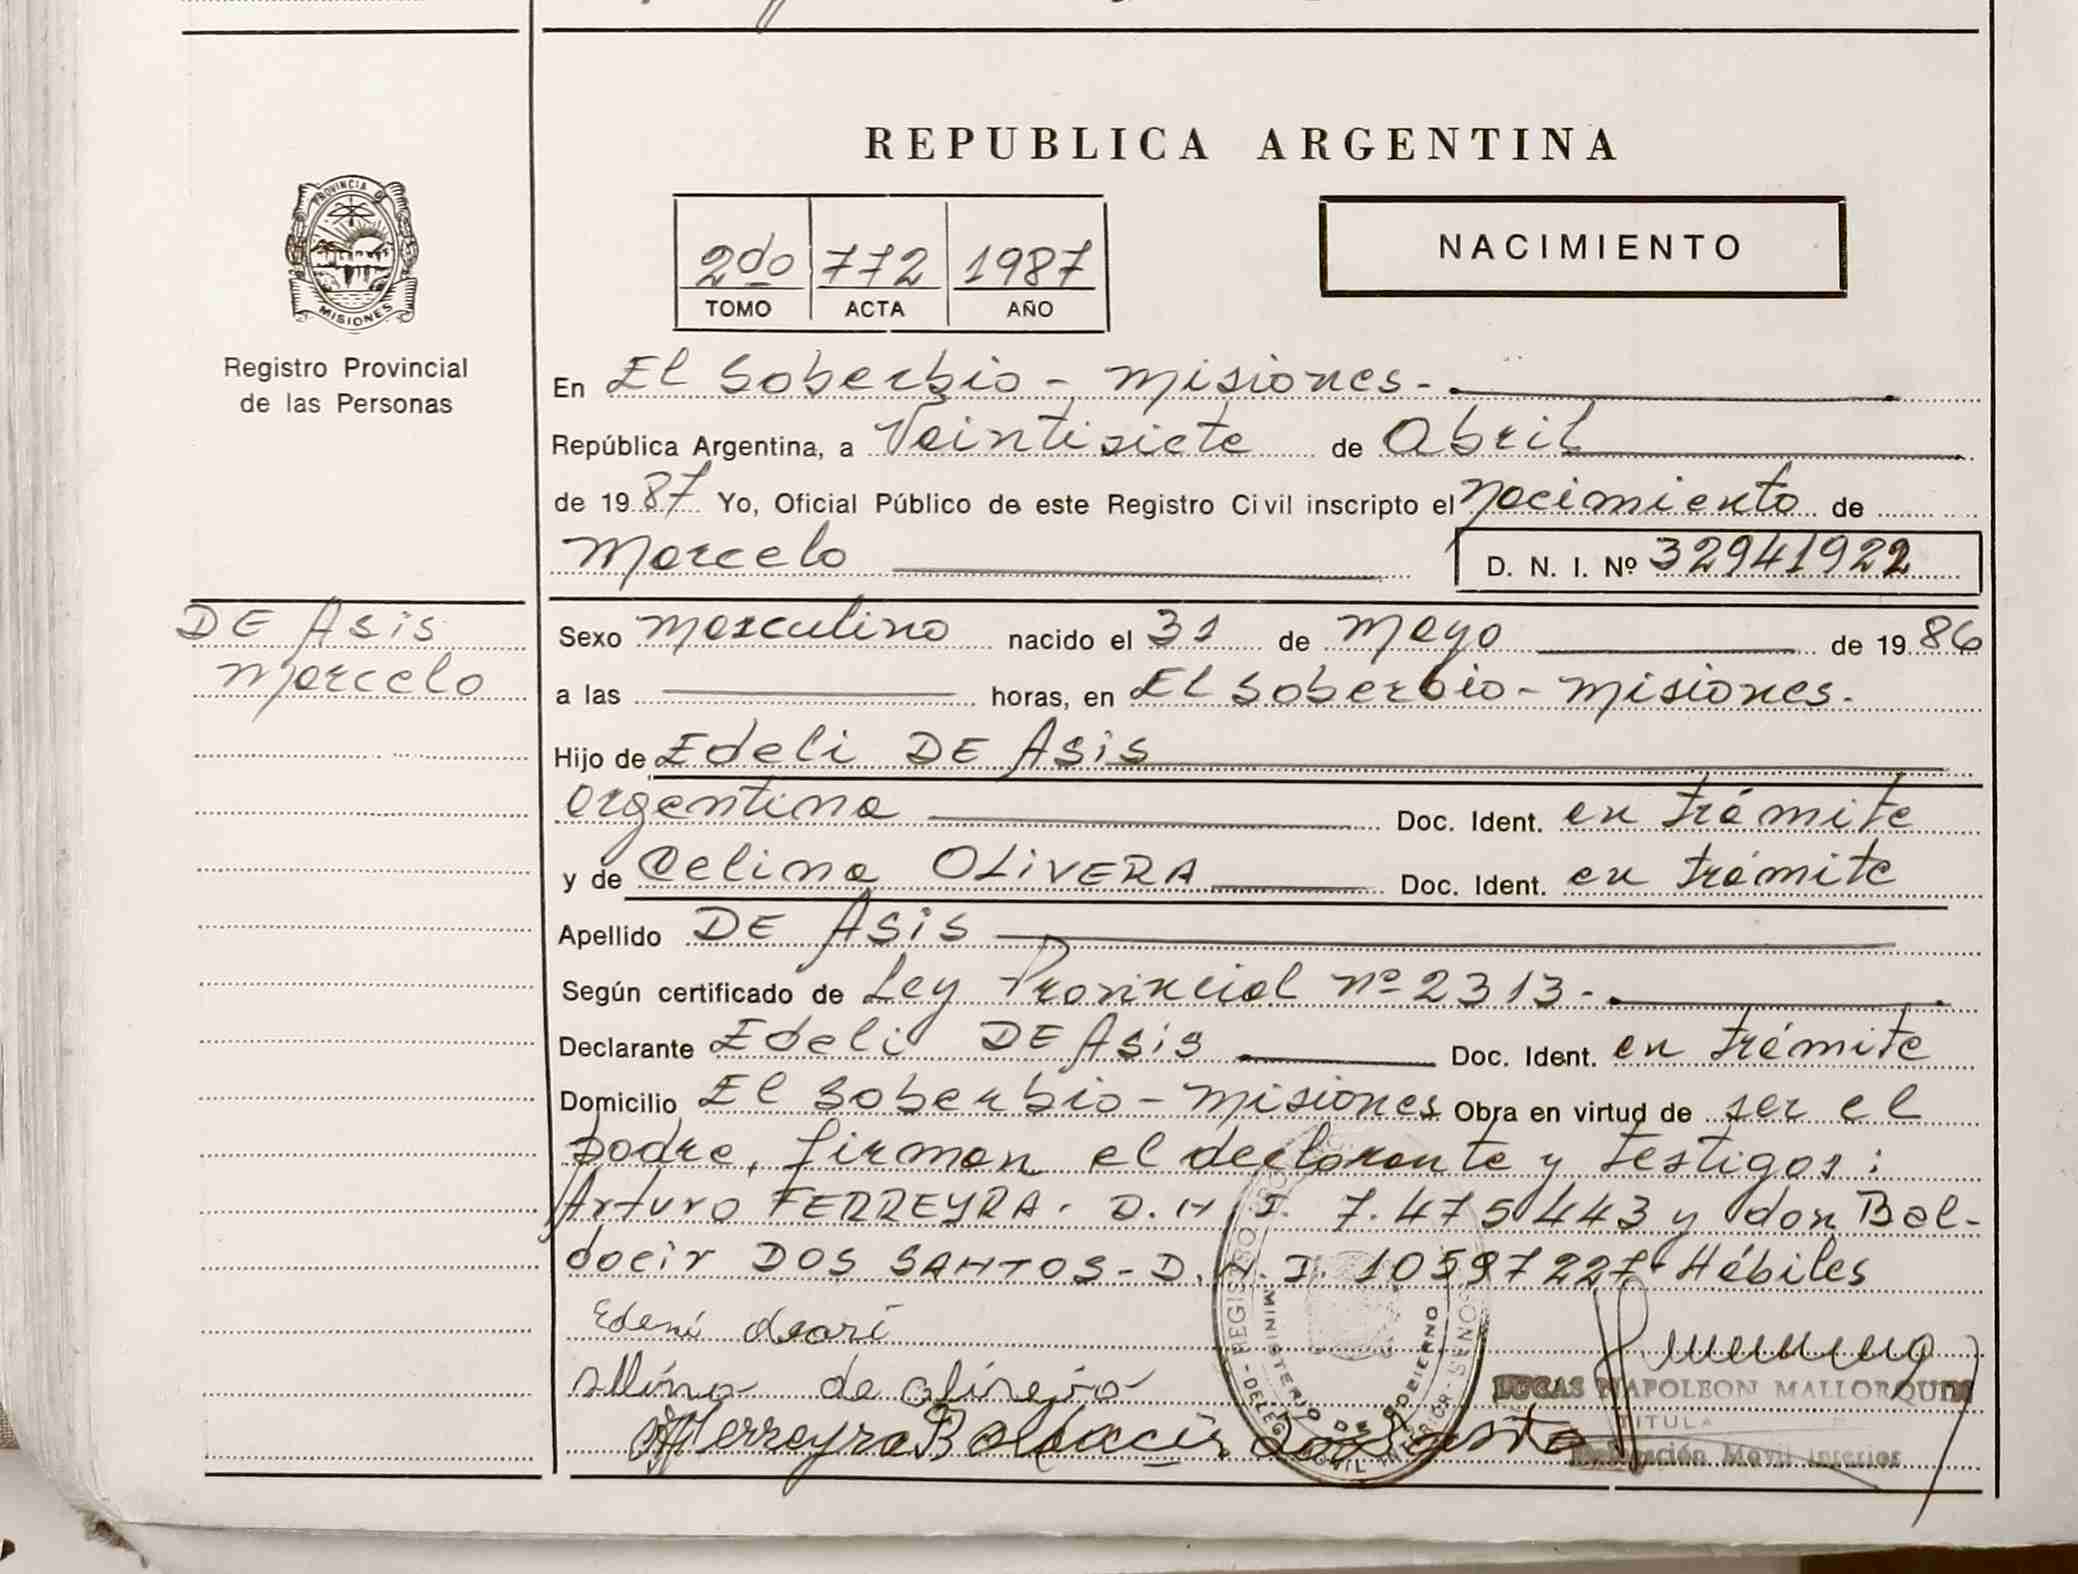 REPUBLICA ARGENTINA
PROVINCIA DE
MISIONES
Registro Provincial
de las Personas
2do 772 1987
TOMO ACTA AÑO
NACIMIENTO
En El Soberbio - Misiones -
República Argentina, a Veintisiete de Abril
de 1987 Yo, Oficial Público de este Registro Civil inscripto el Nacimiento de
Marcelo D. N. I. Nº 32941922
DE Asis
Marcelo
Sexo Masculino nacido el 31 de Mayo de 1986
a las horas, en El Soberbio - Misiones.
Hijo de Edeli DE Asis
Argentina Doc. Ident. en trámite
y de Celina OLIVERA Doc. Ident. en trámite
Apellido DE Asis
Según certificado de Ley Provincial nº 2313 -
Declarante Edeli DE Asis Doc. Ident. en trámite
Domicilio El Soberbio - Misiones Obra en virtud de ser el
padre, firman el declarante y testigos:
Arturo FERREYRA. D.N.I. 7.475443 y don Bal-
docir DOS SANTOS - D.N.I. 10597227 Hábiles
de
Ferreyra Baldacir
MINISTERIO DE GOBIERNO
LUCAS NAPOLEON MALLORQUIN
TITULA
Delegación Movil Interior